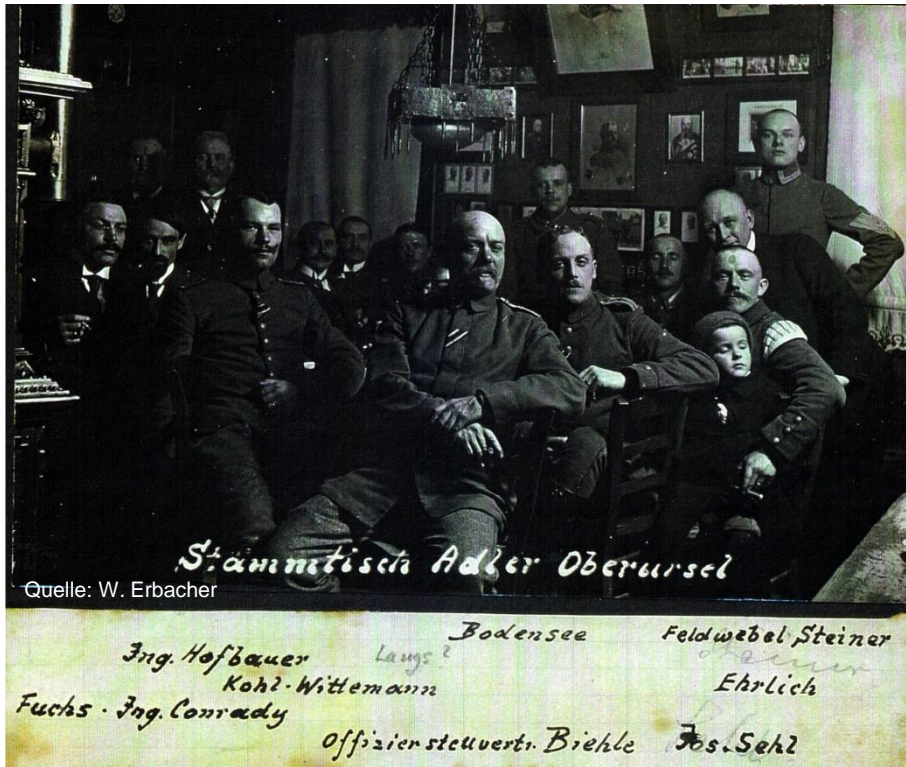 Stammtisch Adler Oberursel
Quelle: W. Erbacher
Bodensee Feldwebel Steiner
Ing. Hofbauer Langs?
Kohl-Wittemann Ehrlich
Fuchs - Ing. Conrady
Offizierstellvertr. Biehle Jos. Sehl